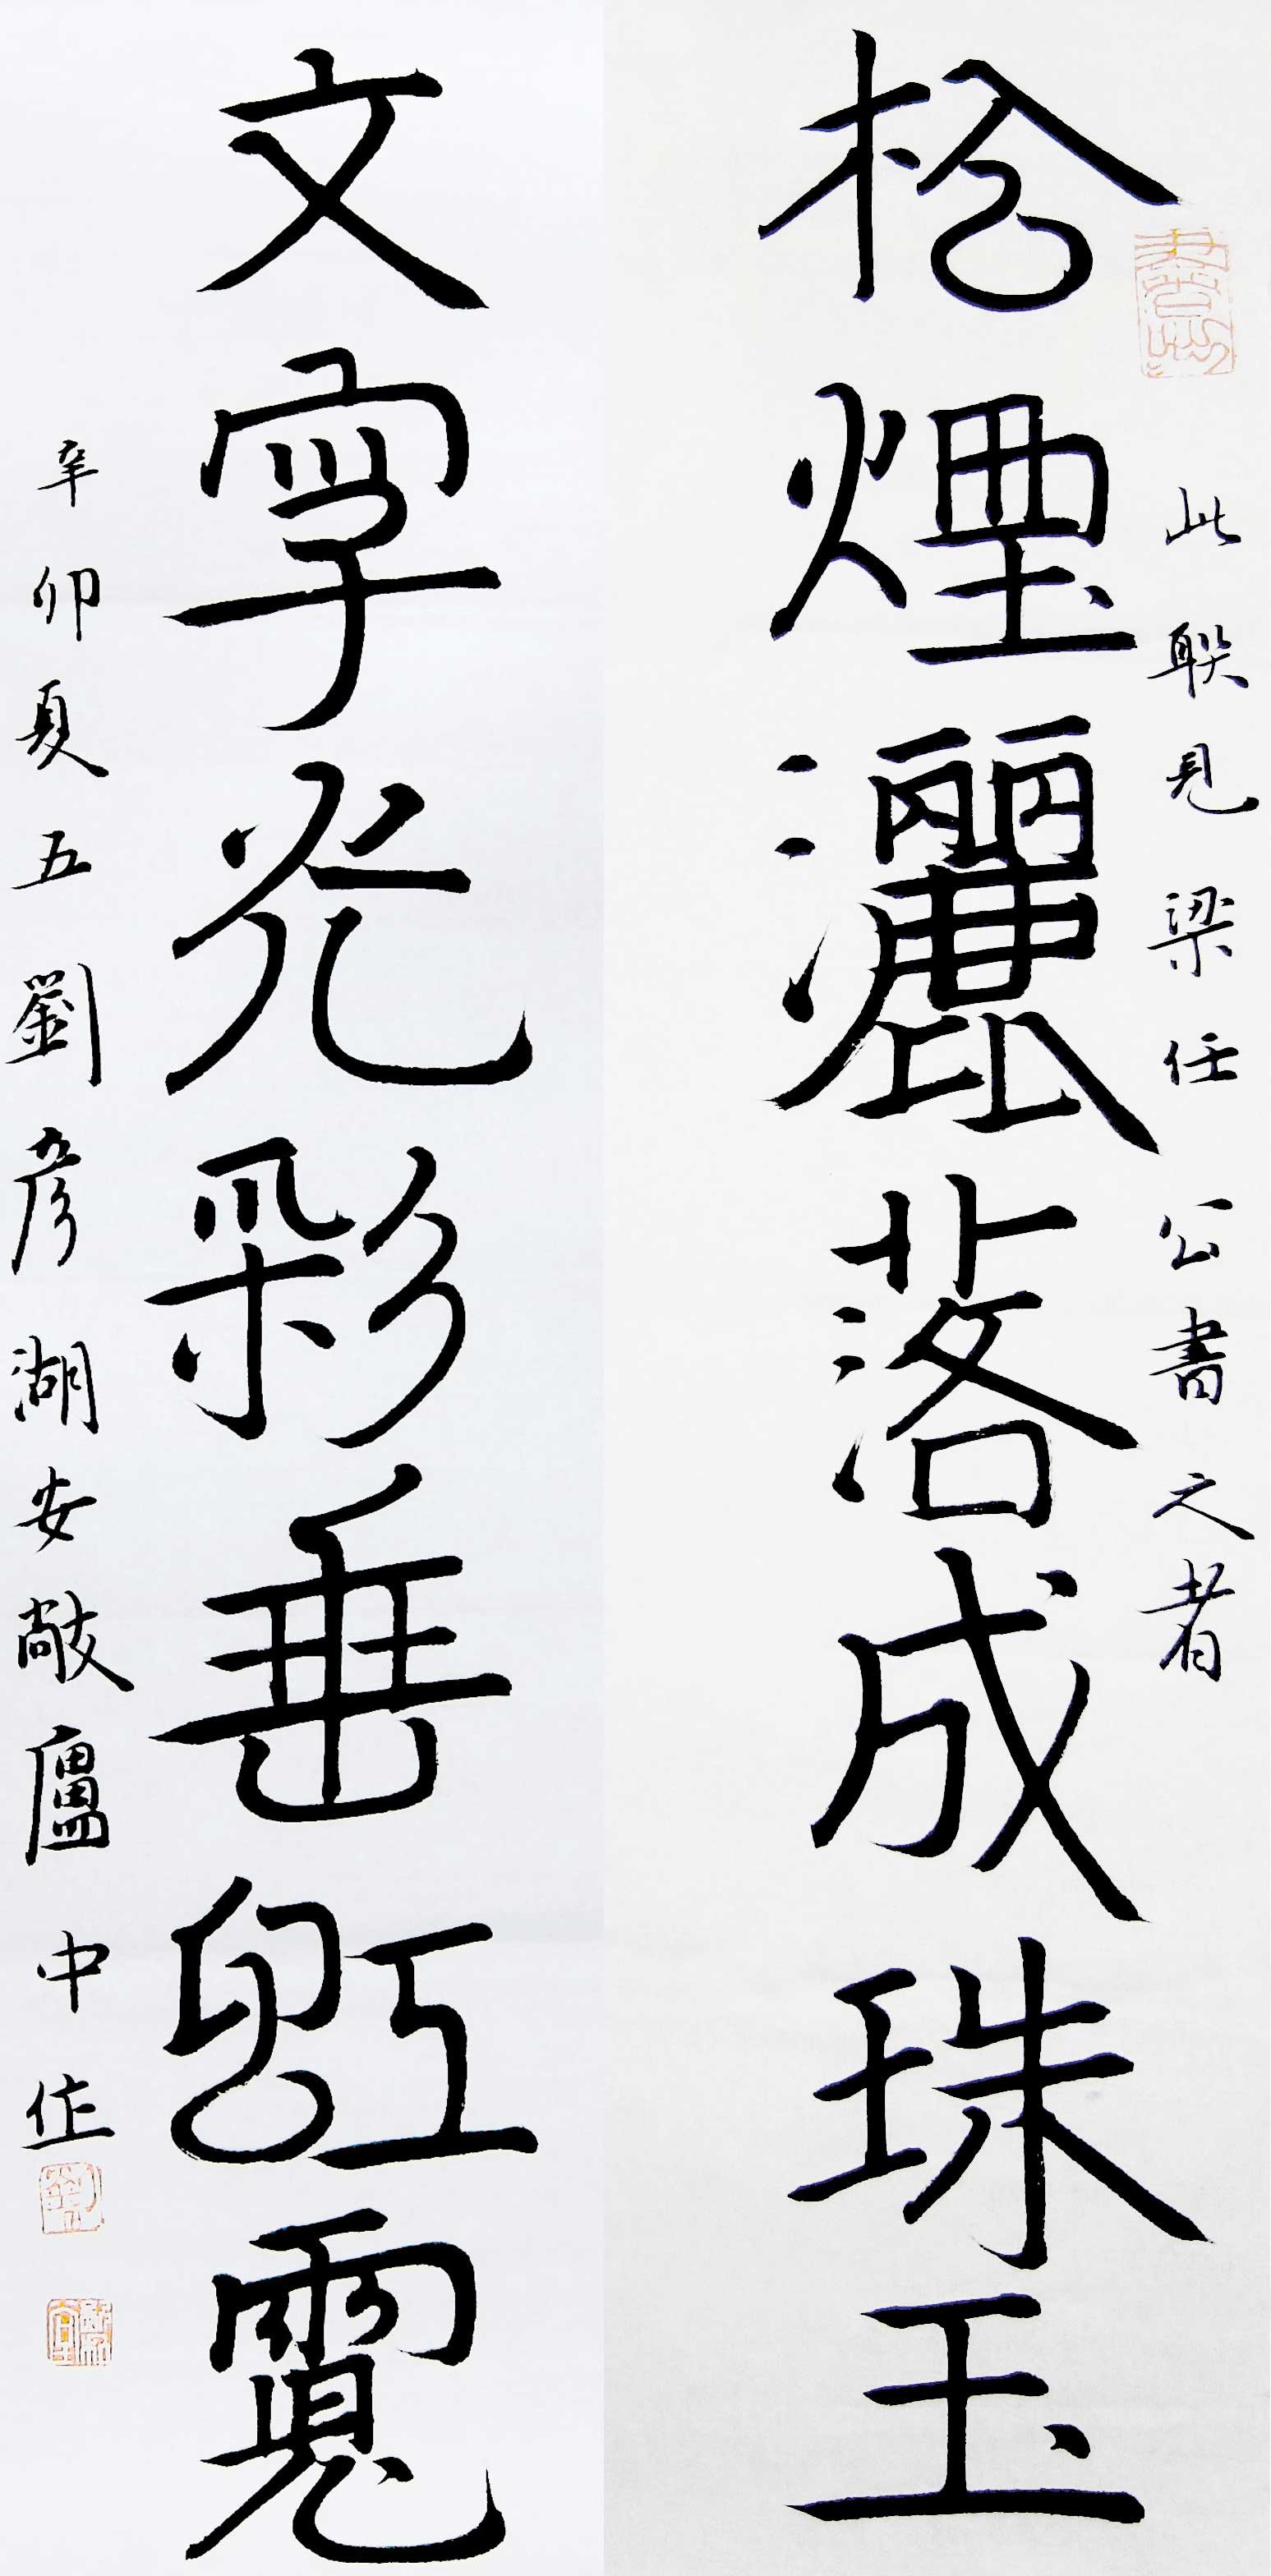 此联見梁任公書之者
松煙灑落成珠玉
文字光彩垂虹霓
辛卯夏五劉彥湖安敞廬中作